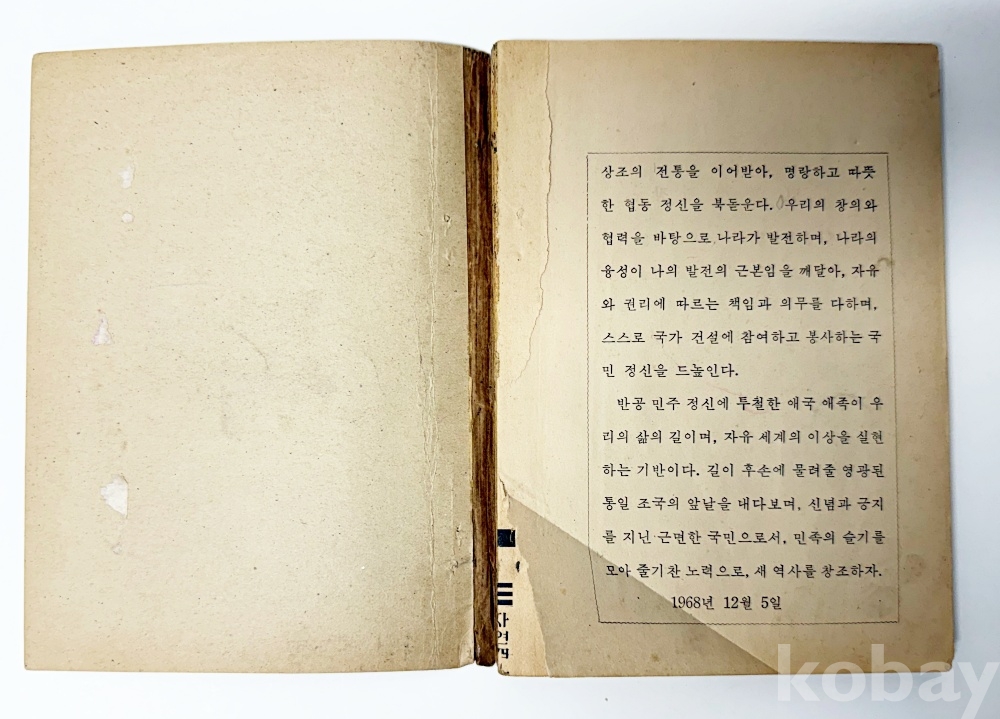 상조의 전통을 이어받아, 명랑하고 따뜻
한 협동 정신을 북돋운다. 우리의 창의와
협력을 바탕으로 나라가 발전하며, 나라의
융성이 나의 발전의 근본임을 깨달아, 자유
와 권리에 따르는 책임과 의무를 다하며,
스스로 국가 건설에 참여하고 봉사하는 국
민 정신을 드높인다.
반공 민주 정신에 투철한 애국 애족이 우
리의 삶의 길이며, 자유 세계의 이상을 실현
하는 기반이다. 길이 후손에 물려줄 영광된
통일 조국의 앞날을 내다보며, 신념과 긍지
를 지닌 근면한 국민으로서, 민족의 슬기를
모아 줄기찬 노력으로, 새 역사를 창조하자.
1968년 12월 5일
자연
kobay